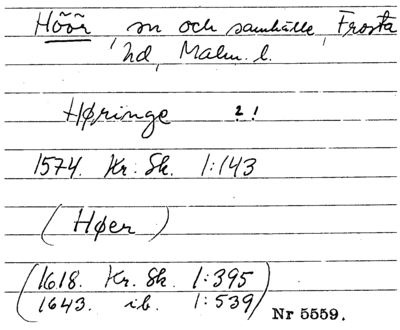 Höör, sn och samhälle, Frosta
hd, Malm. l.
Høringe ?!
1574. Kr. Sk. 1:143
(Høer)
(1618. Kr. Sk. 1:395
1643. ib. 1:539)
Nr 5559.